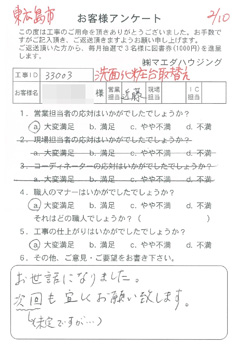 東広島市
2/10
お客様アンケート
この度は工事のご用命を頂きありがとうございました。お手数で
すがご記入頂き、ご返送頂きますようお願い申し上げます。
ご返送頂いた方から、毎月抽選で3名様に図書券(1000円)を進呈
します。
㈱マエダハウジング
工事ID 33003 洗面化粧台取替え
お客様名 様 営業担当 近藤 現場担当 IC担当
1. 営業担当者の応対はいかがでしたでしょうか?
a. 大変満足 b. 満足 c. やや不満 d. 不満
2. 現場担当者の応対はいかがでしたでしょうか?
a. 大変満足 b. 満足 c. やや不満 d. 不満
3. コーディネーターの応対はいかがでしたでしょうか?
a. 大変満足 b. 満足 c. やや不満 d. 不満
4. 職人のマナーはいかがでしたでしょうか?
a. 大変満足 b. 満足 c. やや不満 d. 不満
それはどの職人でしょうか?( )
5. 工事の仕上がりはいかがでしたでしょうか?
a. 大変満足 b. 満足 c. やや不満 d. 不満
6. その他、ご意見・ご要望をお書き下さい。
お世話になりました。
次回も宜しくお願い致します。
(未定ですが…)